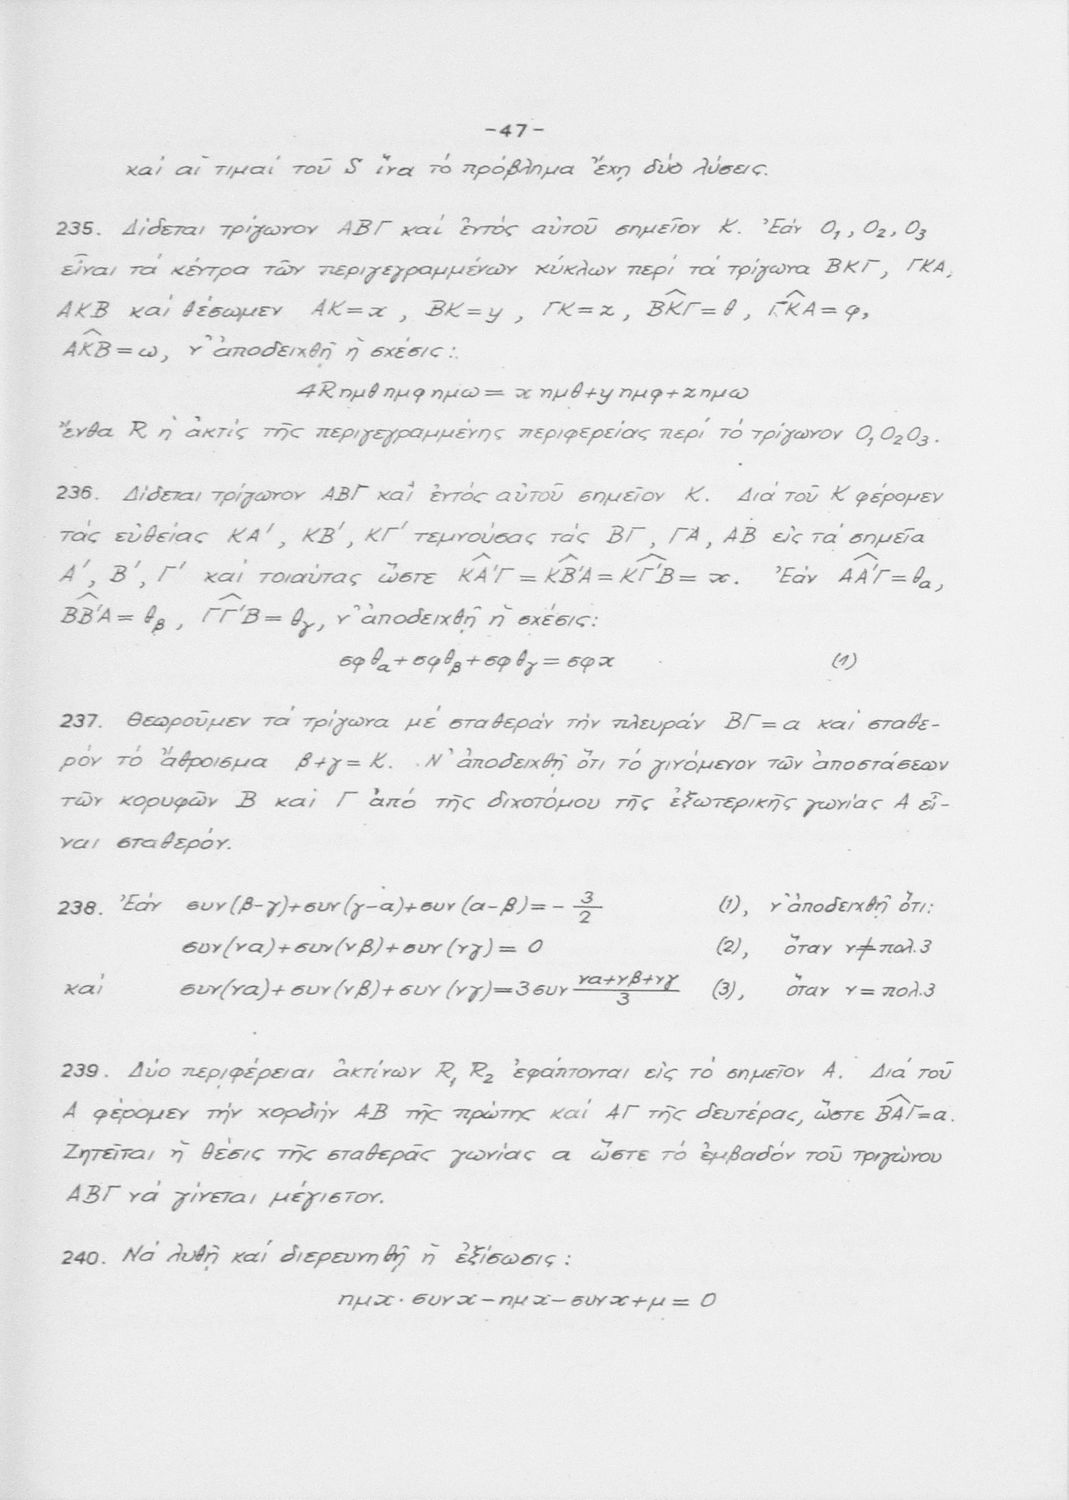 -47-
καί αἱ τιμαί τοῦ S ἵνα τό πρόβλημα ἔχῃ δύο λύσεις.
235. Δίδεται τρίγωνον ΑΒΓ καί ἐντός αὐτοῦ σημεῖον Κ. Ἐάν O₁, O₂, O₃
εἶναι τά κέντρα τῶν περιγεγραμμένων κύκλων περί τά τρίγωνα ΒΚΓ, ΓΚΑ,
ΑΚΒ καί θέσωμεν ΑΚ=x, ΒΚ=y, ΓΚ=z, ΒK̂Γ=θ, ΓK̂Α=φ,
ΑK̂Β=ω, ν' ἀποδειχθῇ ἡ σχέσις:
4Rημθ ημφ ημω = x ημθ+y ημφ+z ημω
ἔνθα R ἡ ἀκτίς τῆς περιγεγραμμένης περιφερείας περί τό τρίγωνον O₁O₂O₃.
236. Δίδεται τρίγωνον ΑΒΓ καί ἐντός αὐτοῦ σημεῖον Κ. Διά τοῦ Κ φέρομεν
τάς εὐθείας ΚΑ', ΚΒ', ΚΓ' τεμνούσας τάς ΒΓ, ΓΑ, ΑΒ εἰς τά σημεῖα
Α', Β', Γ' καί τοιαύτας ὥστε ΚÂ'Γ = ΚB̂'Α = ΚΓ̂'Β = x. Ἐάν ΑÂ'Γ = θα,
ΒB̂'Α = θβ, ΓΓ̂'Β = θγ, ν' ἀποδειχθῇ ἡ σχέσις:
σφθα+σφθβ+σφθγ = σφx (1)
237. Θεωροῦμεν τά τρίγωνα μέ σταθεράν τήν πλευράν ΒΓ = α καί σταθε-
ρόν τό ἄθροισμα β+γ = Κ. Ν' ἀποδειχθῇ ὅτι τό γινόμενον τῶν ἀποστάσεων
τῶν κορυφῶν Β καί Γ ἀπό τῆς διχοτόμου τῆς ἐξωτερικῆς γωνίας Α εἶ-
ναι σταθερόν.
238. Ἐάν συν(β-γ)+συν(γ-α)+συν(α-β) = - 3/2 (1), ν' ἀποδειχθῇ ὅτι:
συν(να)+συν(νβ)+συν(νγ) = 0 (2), ὅταν ν≠πολ.3
καί συν(να)+συν(νβ)+συν(νγ)=3συν (να+νβ+νγ)/3 (3), ὅταν ν = πολ.3
239. Δύο περιφέρειαι ἀκτίνων R₁ R₂ ἐφάπτονται εἰς τό σημεῖον Α. Διά τοῦ
Α φέρομεν τήν χορδήν ΑΒ τῆς πρώτης καί ΑΓ τῆς δευτέρας, ὥστε ΒÂΓ=α.
Ζητεῖται ἡ θέσις τῆς σταθερᾶς γωνίας α ὥστε τό ἐμβαδόν τοῦ τριγώνου
ΑΒΓ νά γίνεται μέγιστον.
240. Νά λυθῇ καί διερευνηθῇ ἡ ἐξίσωσις:
ημx · συνx - ημx - συνx + μ = 0